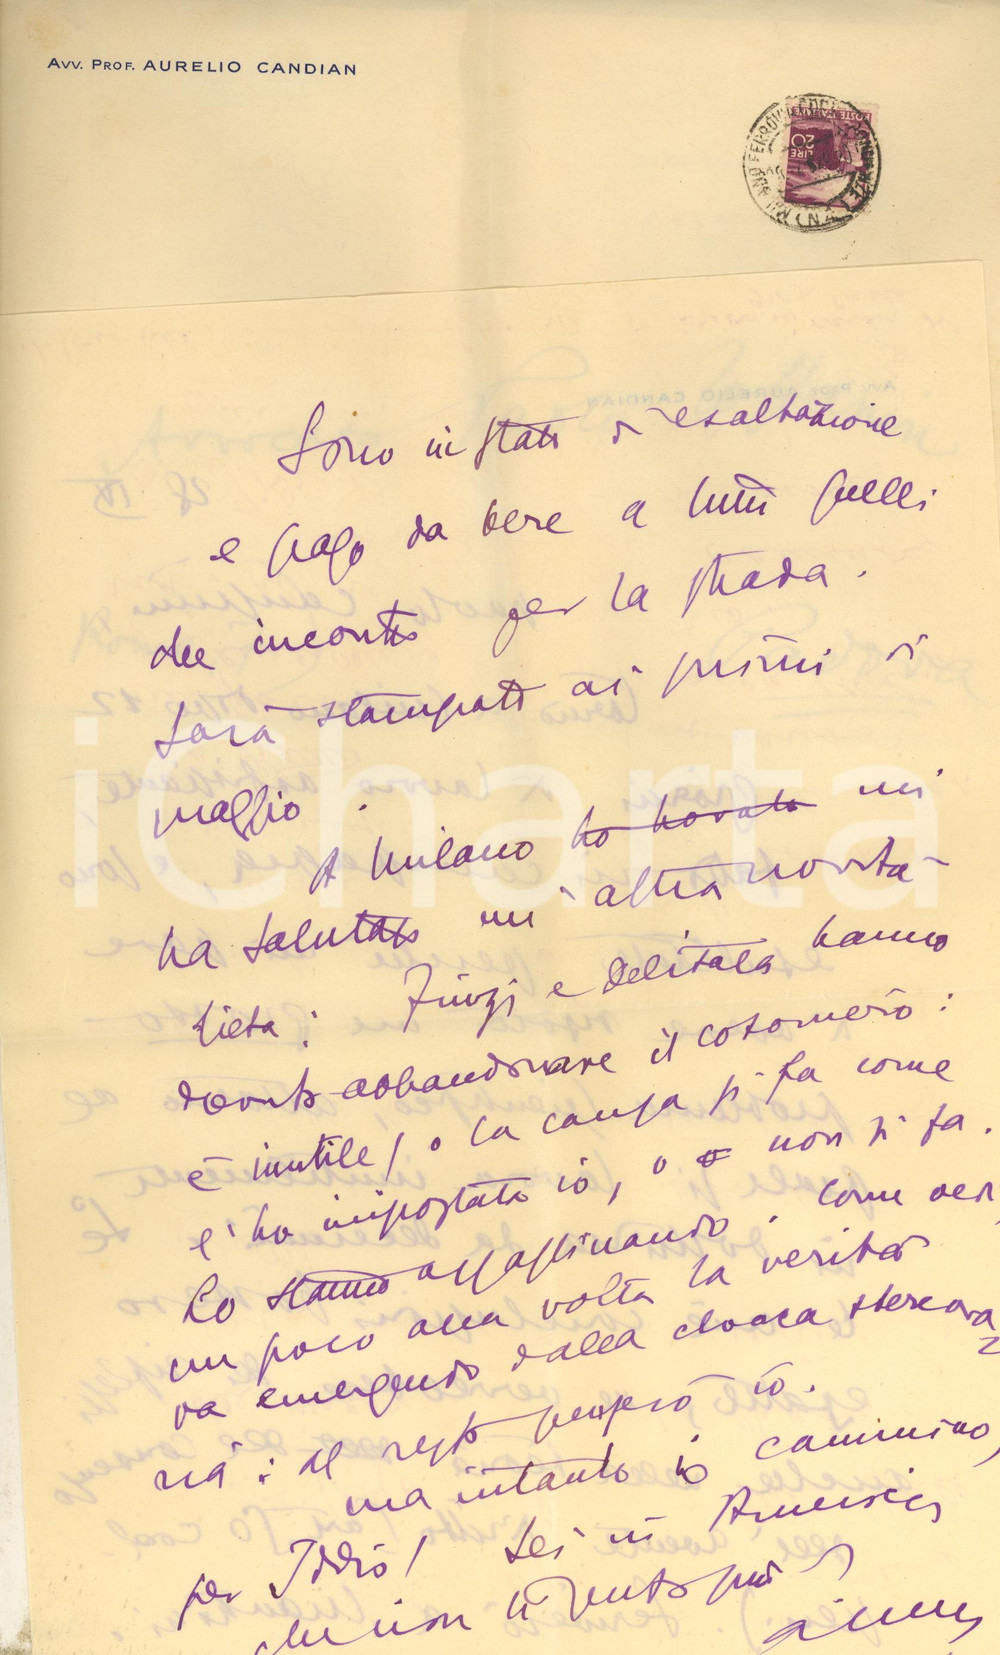 AVV. PROF. AURELIO CANDIAN
POSTE ITALIANE
LIRE 20
Sono in stato di esaltazione
e pago da bere a tutti quelli
che incontro per la strada.
Sarà stampato ai primi di
maggio.
A Milano ho trovato mi
ha salutato un'altra novità
lieta: Finzi e Delitala hanno
dovuto abbandonare il
è inutile! o la causa si fa come
l'ho impostata io, o non si fa.
Lo stanno assassinando. Come ved
un poco alla volta la verità
va emergendo dalla cloaca stercora
ria: al resto penserò io.
ma intanto io cammino,
per Iddio! Lei in America
che non
iCharta